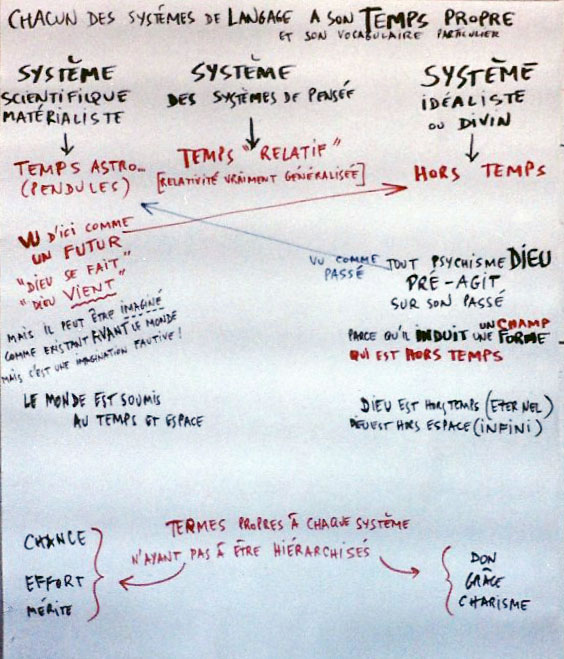 CHACUN DES SYSTÈMES DE LANGAGE A SON TEMPS PROPRE
ET SON VOCABULAIRE PARTICULIER
SYSTÈME
SCIENTIFIQUE
MATÉRIALISTE
TEMPS ASTRO...
(PENDULES)
VU D'ICI COMME
UN FUTUR
"DIEU SE FAIT"
"DIEU VIENT"
MAIS IL PEUT ÊTRE IMAGINÉ
COMME EXISTANT AVANT LE MONDE
MAIS C'EST UNE IMAGINATION FAUTIVE!
LE MONDE EST SOUMIS
AU TEMPS ET ESPACE
SYSTÈME
DES SYSTÈMES DE PENSÉE
TEMPS "RELATIF"
[RELATIVITÉ VRAIMENT GÉNÉRALISÉE]
SYSTÈME
IDÉALISTE
OU DIVIN
HORS TEMPS
VU COMME
PASSÉ
TOUT PSYCHISME DIEU
PRÉ-AGIT
SUR SON PASSÉ
PARCE QU'IL INDUIT UN CHAMP
UNE FORME
QUI EST HORS TEMPS
DIEU EST HORS TEMPS (ETERNEL)
DIEU EST HORS ESPACE (INFINI)
TERMES PROPRES À CHAQUE SYSTÈME
N'AYANT PAS À ÊTRE HIÉRARCHISÉS
CHANCE
EFFORT
MÉRITE
DON
GRÂCE
CHARISME